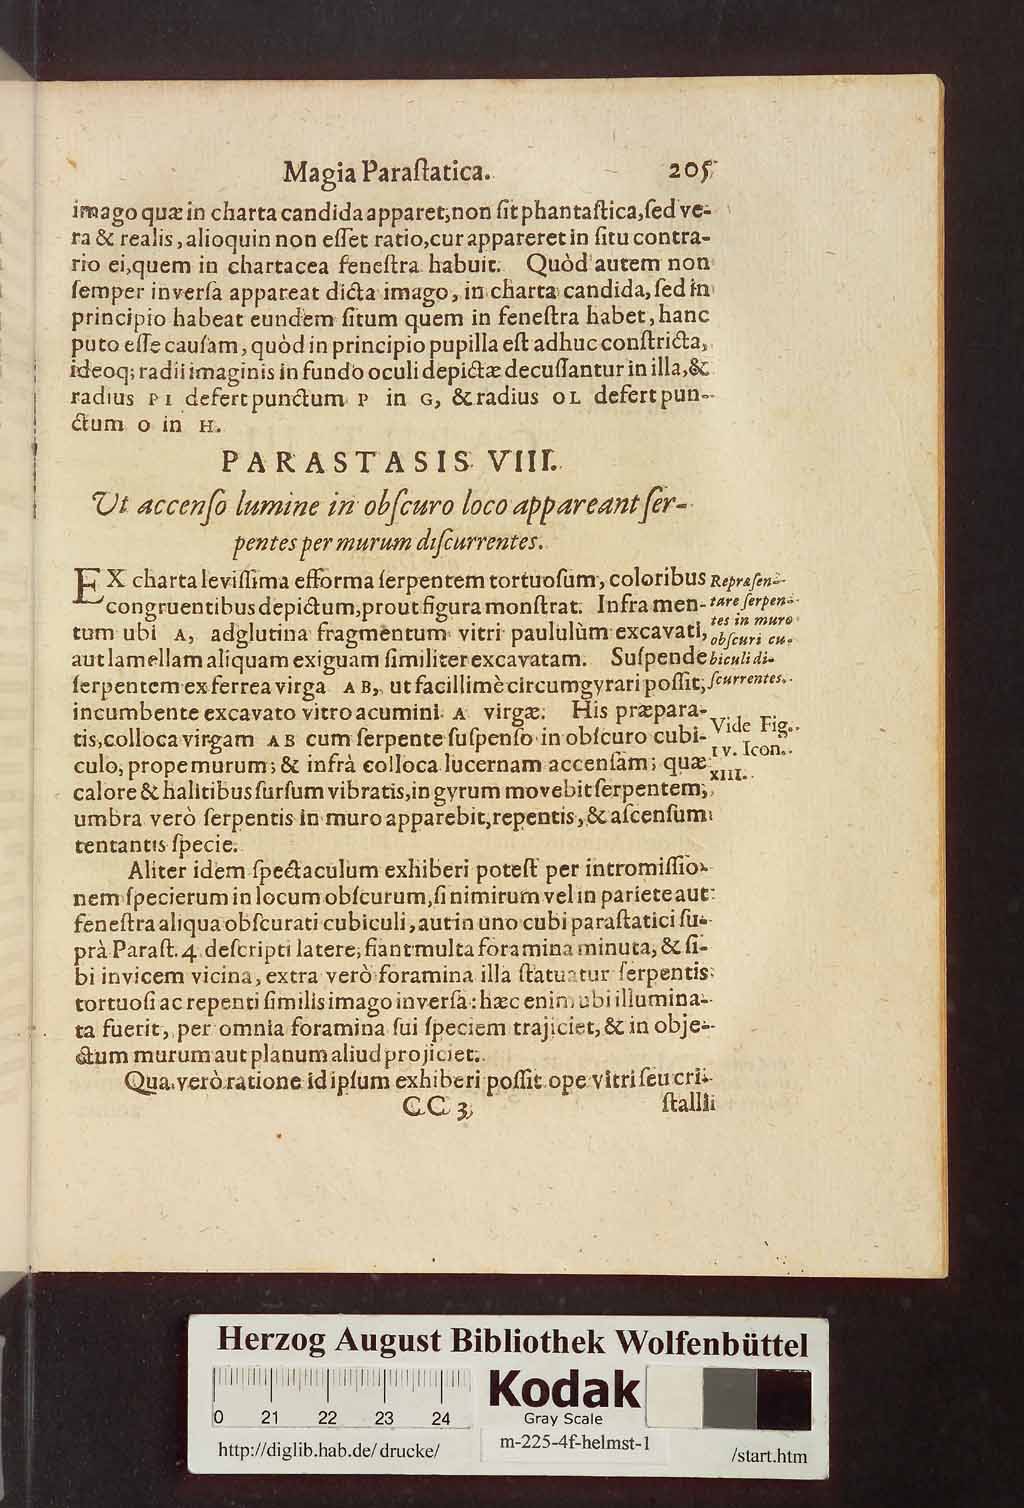 Magia Paraſtatica. 205
imago quæ in charta candida apparet, non ſit phantaſtica, ſed ve-
ra & realis, alioquin non eſſet ratio, cur appareret in ſitu contra-
rio ei, quem in chartacea feneſtra habuit. Quòd autem non
ſemper inverſa appareat dicta imago, in charta candida, ſed in
principio habeat eundem ſitum quem in feneſtra habet, hanc
puto eſſe cauſam, quòd in principio pupilla eſt adhuc conſtricta,
ideoq; radii imaginis in fundo oculi depictæ decuſſantur in illa, &
radius PI defert punctum P in G, & radius OL defert pun-
ctum O in H.
PARASTASIS VIII.
Ut accenſo lumine in obſcuro loco appareant ſer-
pentes per murum diſcurrentes.
EX charta leviſſima efforma ſerpentem tortuoſum, coloribus
congruentibus depictum, prout figura monſtrat. Infra men-
tum ubi A, adglutina fragmentum vitri paululùm excavati,
aut lamellam aliquam exiguam ſimiliter excavatam. Suſpende
ſerpentem ex ferrea virga AB, ut facillimè circumgyrari poſſit,
incumbente excavato vitro acumini A virgæ. His præpara-
tis, colloca virgam AB cum ſerpente ſuſpenſo in obſcuro cubi-
culo, prope murum; & infrà colloca lucernam accenſam; quæ
calore & halitibus ſurſum vibratis, in gyrum movebit ſerpentem,
umbra verò ſerpentis in muro apparebit, repentis, & aſcenſum
tentantis ſpecie.
Repræſen-
tare ſerpen-
tes in muro
obſcuri cu-
biculi di-
ſcurrentes.
Vide Fig.
IV. Icon.
XIII.
Aliter idem ſpectaculum exhiberi poteſt per intromiſſio-
nem ſpecierum in locum obſcurum, ſi nimirum vel in pariete aut
feneſtra aliqua obſcurati cubiculi, aut in uno cubi paraſtatici ſu-
prà Paraſt. 4. deſcripti latere, fiant multa foramina minuta, & ſi-
bi invicem vicina, extra verò foramina illa ſtatuatur ſerpentis
tortuoſi ac repenti ſimilis imago inverſa: hæc enim ubi illumina-
ta fuerit, per omnia foramina ſui ſpeciem trajiciet, & in obje-
ctum murum aut planum aliud projiciet.
Qua verò ratione id ipſum exhiberi poſſit ope vitri ſeu cri-
CC 3 ſtalli
Herzog August Bibliothek Wolfenbüttel
0 21 22 23 24
Kodak
Gray Scale
http://diglib.hab.de/drucke/
m-225-4f-helmst-1
/start.htm